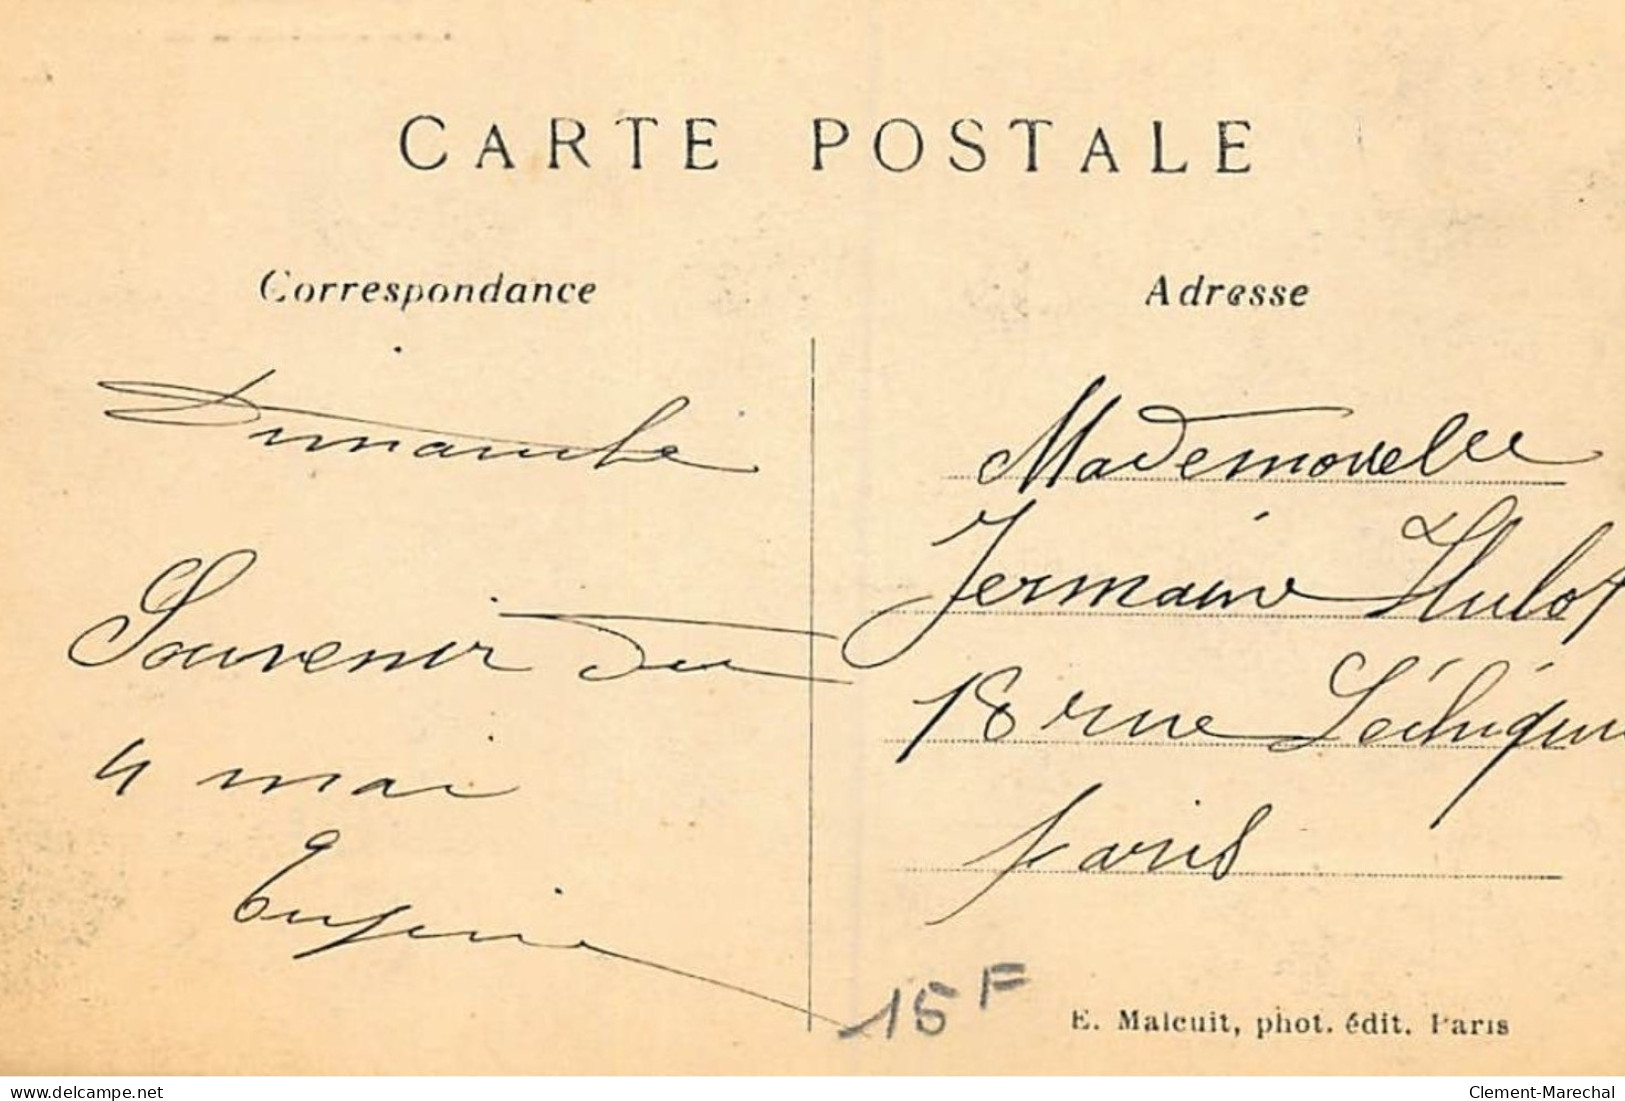 CARTE POSTALE
Correspondance
Dimanche
Souvenir du
4 mai
Eugénie
Adresse
Mademoiselle
Germaine Hulot
18 rue
Paris
15 F
E. Malcuit, phot. édit. Paris
www.delcampe.net
Clement-Marechal